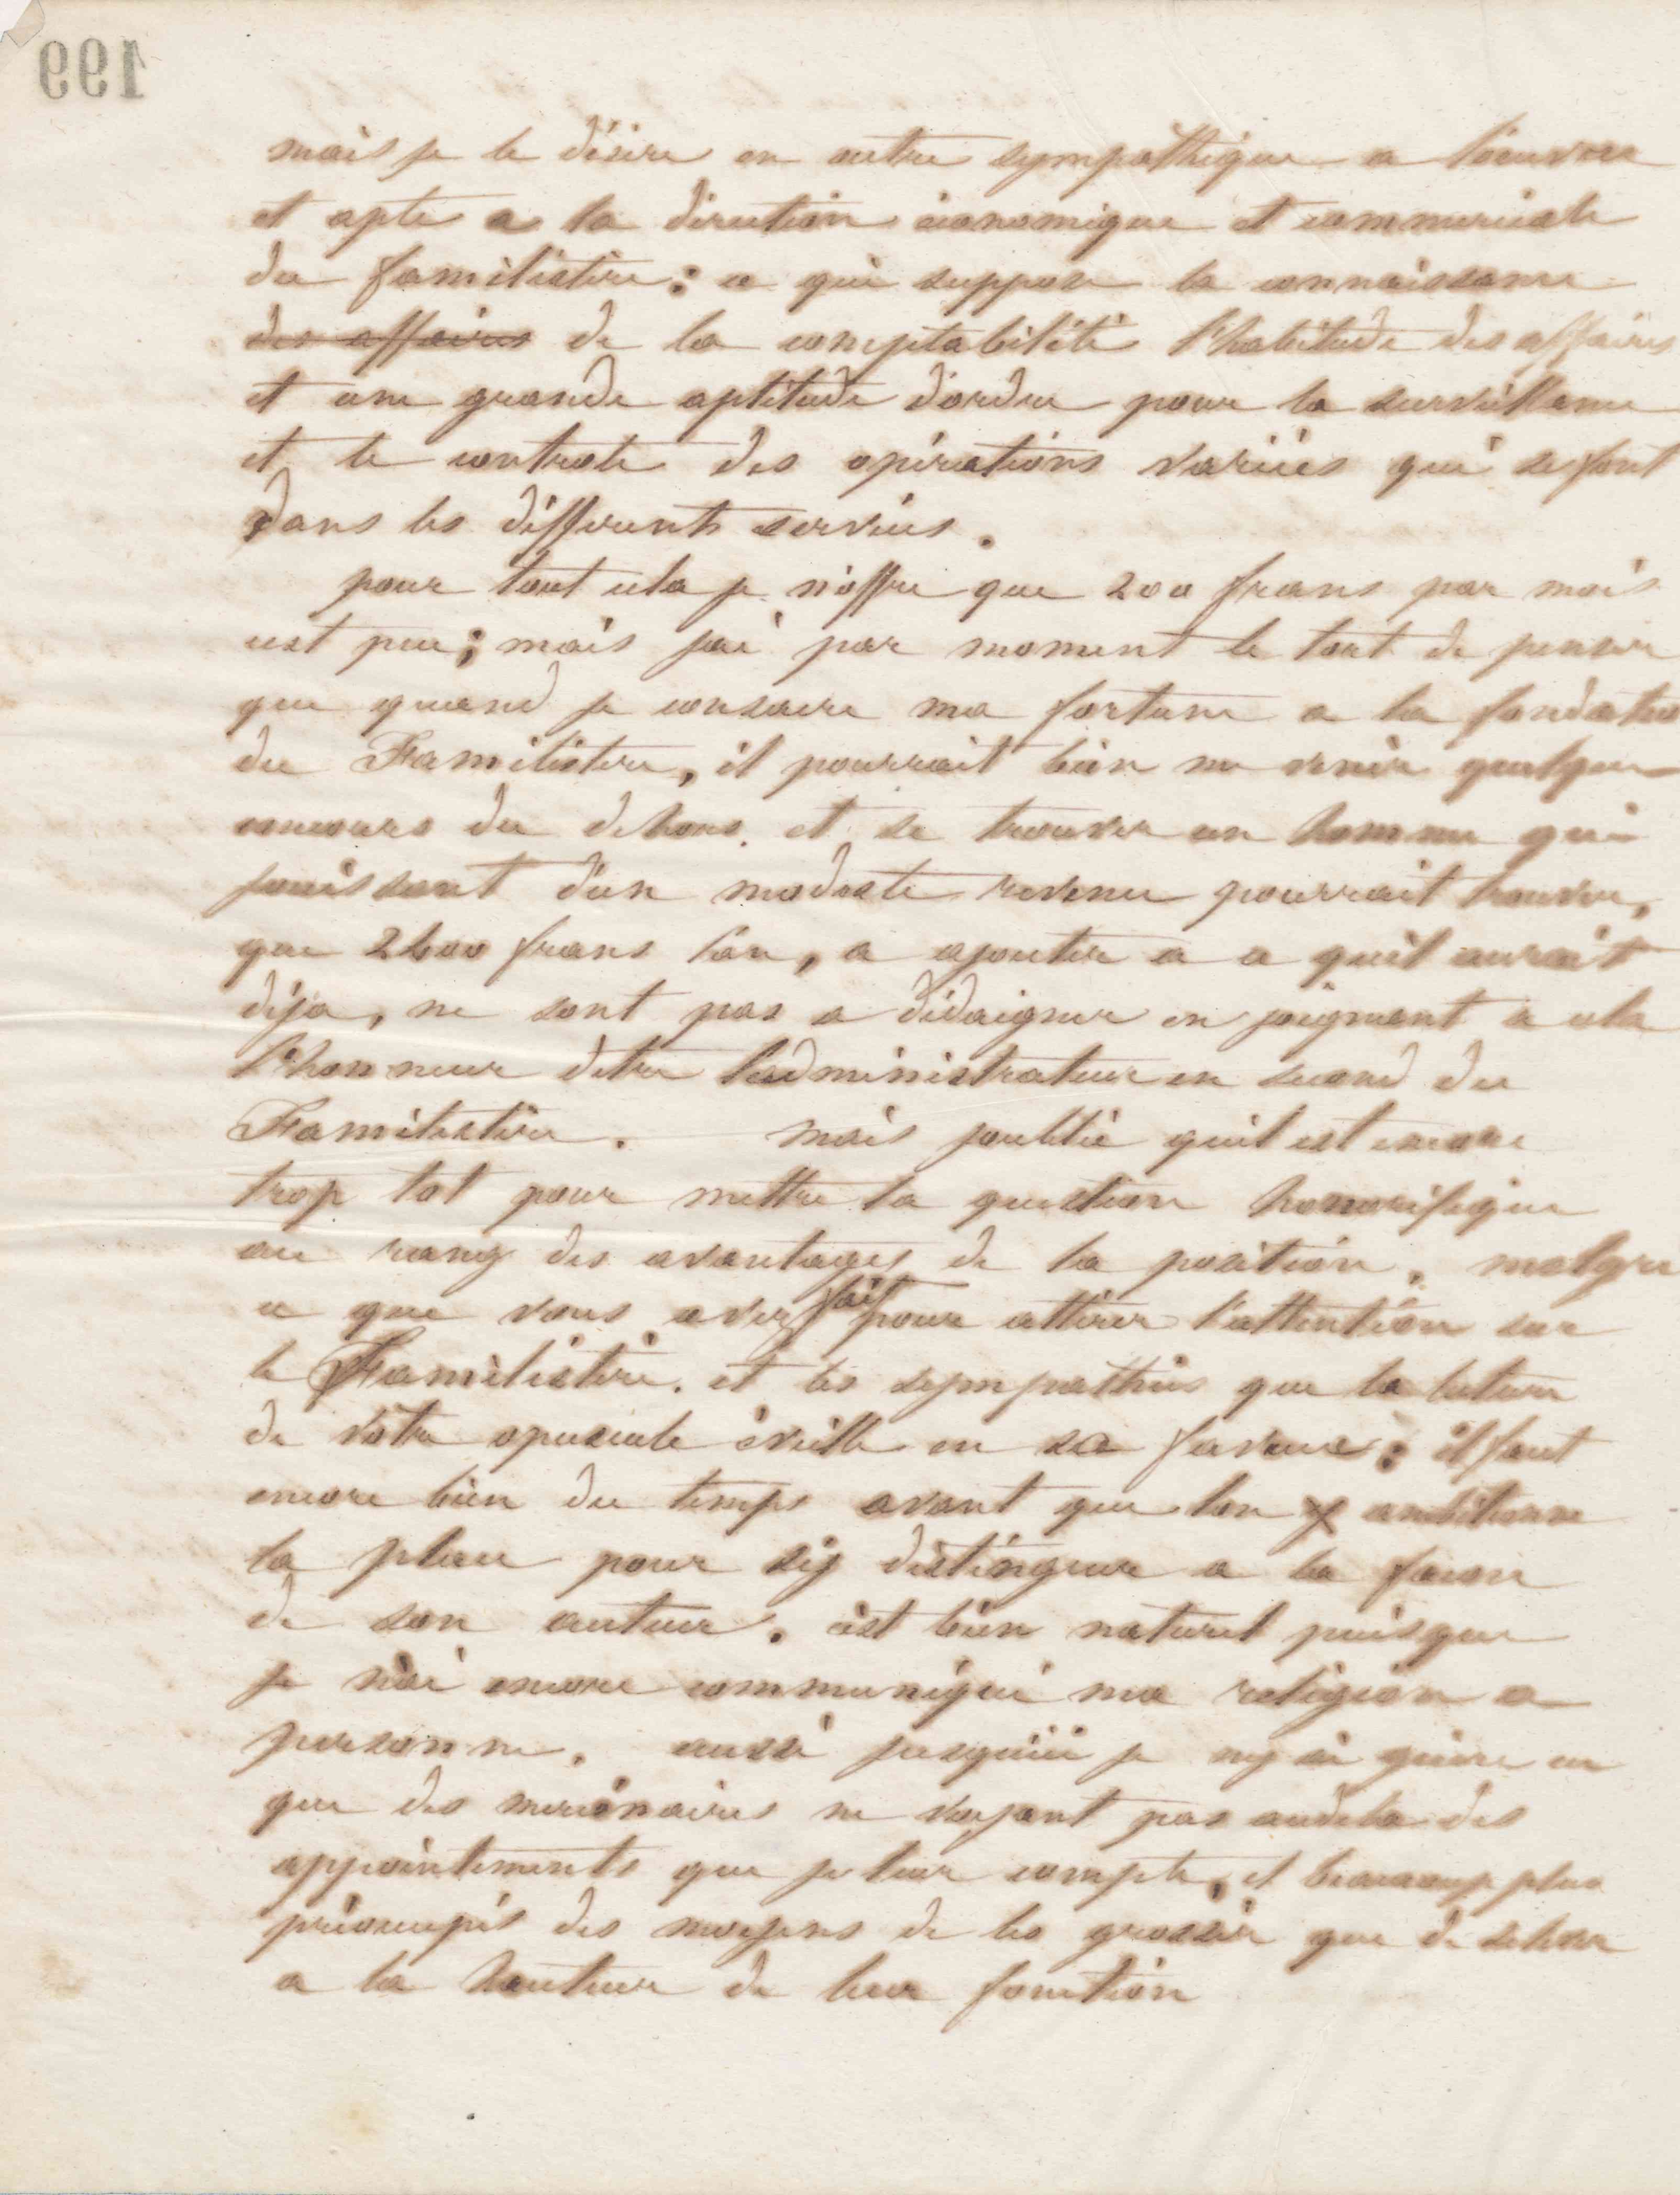 199
mais je le désire en outre sympathique a l'oeuvre
et apte a la direction économique et commerciale
du familistère: ce qui suppose la connaissance
des affaires de la comptabilité l'habitude des affaires
et une grande aptitude d'ordre pour la surveillance
et le controle des opérations variées qui se font
dans les différents services.
pour tout cela je n'offre que 200 francs par mois
cest peu; mais jai par moment le tort de penser
que quand je consacre ma fortune a la fondation
du Familistère, il pourrait bien me venir quelque
concours du dehors. et se trouver un homme qui
jouissant d'un modeste revenu pourrait trouver,
que 2400 francs l'an, a ajouter a ce quil aurait
déja, ne sont pas a dédaigner en joignant a cela
l'honneur detre l'administrateur en second du
Familistère. mais joublie quil est encore
trop tot pour mettre la question honorifique
au rang des avantages de la position, malgré
ce que vous avez fait pour attirer l'attention sur
le Familistère. et les sympathies que la lecture
de votre opuscule éveille en sa faveur: il faut
encore bien du temps avant que lon y ambitionne
la place pour sy distinguer a la facon
de son auteur. cest bien naturel puisque
je n'ai encore communiqué ma religion a
personne. aussi jusquici je ny ai guère eu
que des mercénaires ne voyant pas audela des
appointements que je leur compte, et beaucoup plus
préoccupés des moyens de les grossir que de selever
a la hauteur de leur fonction